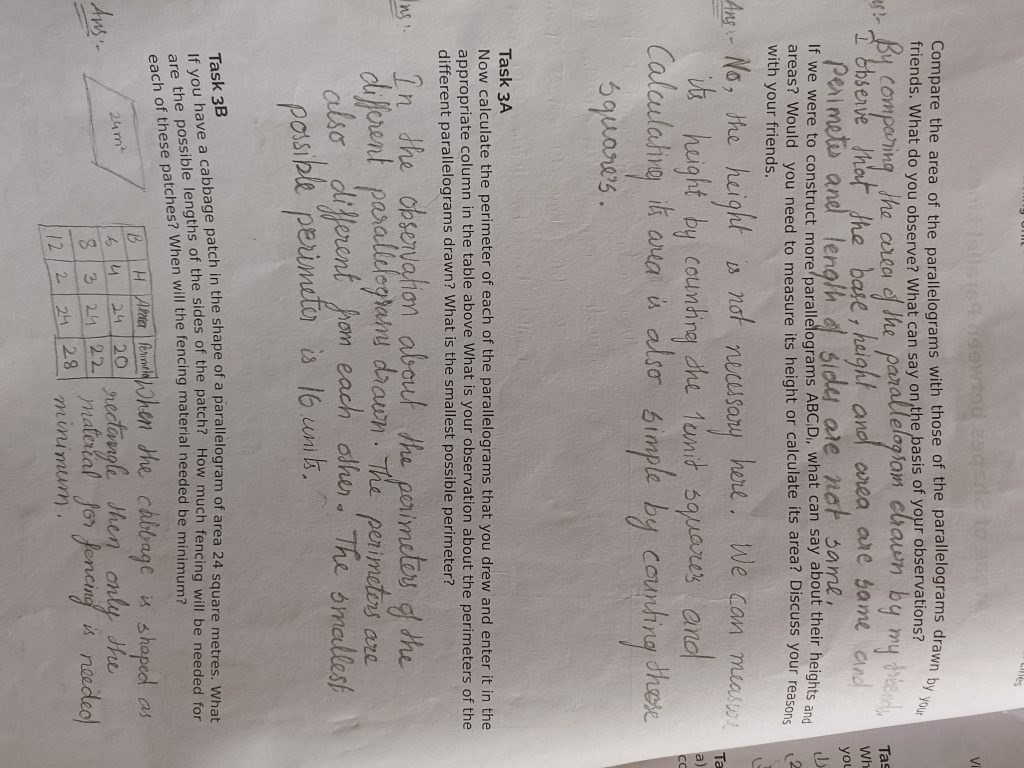 Compare the area of the parallelograms with those of the parallelograms drawn by your
friends. What do you observe? What can say on the basis of your observations?
By comparing the area of the parallelogram drawn by my friends,
I observe that the base, height and area are same and
perimeter and length of sides are not same.
If we were to construct more parallelograms ABCD, what can say about their heights and
areas? Would you need to measure its height or calculate its area? Discuss your reasons
with your friends.
Ans:- No, the height is not necessary here. We can measure
its height by counting the 1 unit squares and
Calculating its area is also simple by counting those
square's.
Task 3A
Now calculate the perimeter of each of the parallelograms that you drew and enter it in the
appropriate column in the table above What is your observation about the perimeters of the
different parallelograms drawn? What is the smallest possible perimeter?
Ans:- In the observation about the perimeters of the
different parallelograms drawn. The perimeters are
also different from each other. The smallest
possible perimeter is 16 units.
Task 3B
If you have a cabbage patch in the shape of a parallelogram of area 24 square metres. What
are the possible lengths of the sides of the patch? How much fencing will be needed for
each of those patches? When will the fencing material needed be minimum?
Ans:-
24m²
B H Area Perimeter
6 4 24 20
8 3 24 22
12 2 24 28
When the cabbage is shaped as
rectangle then only the
material for fencing is needed
minimum.
Tas
you
Ta
a)